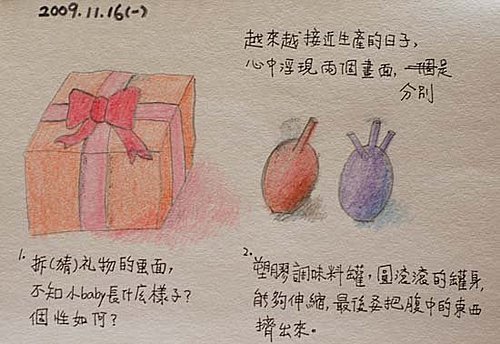 2009.11.16(一)
越來越接近生產的日子,
心中浮現兩個畫面, 一個是
分別
1. 拆(猜)礼物的画面,
不知小baby長什麼樣子?
個性如何?
2. 塑膠調味料罐, 圓滾滾的罐身,
能夠伸縮, 最後要把腹中的東西
擠出來。